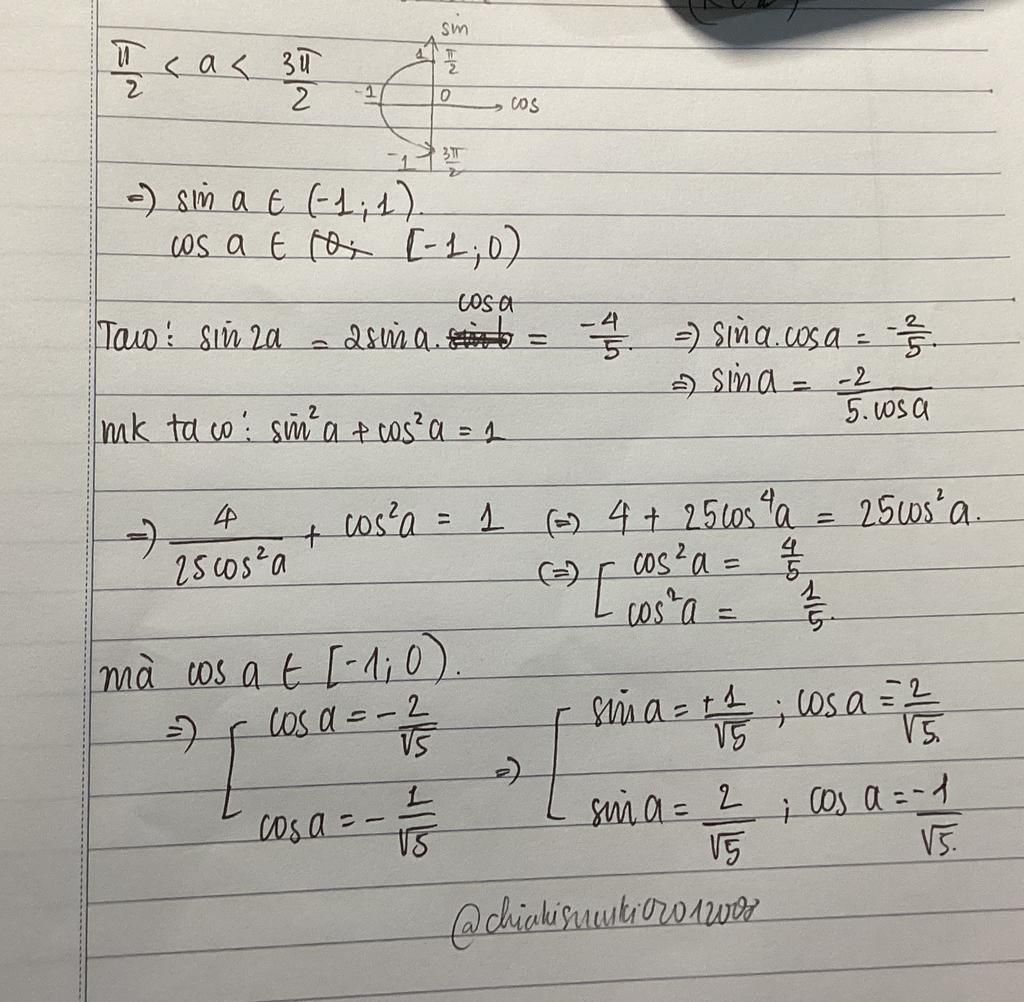 (k∈Z)
π/2 < a < 3π/2
sin
1 π/2
-1 0 cos
-1 3π/2
=) sin a ∈ (-1; 1).
cos a ∈ [-1; 0)
cosa
Taco: sin 2a = 2sin a. = -4/5 => sina.cosa = -2/5.
=> sin a = -2/5.cosa
mk ta co: sin²a + cos²a = 1
=) 4/25cos²a + cos²a = 1 (=) 4 + 25cos⁴a = 25cos²a.
(=) [ cos²a = 4/5
cos²a = 1/5.
mà cos a ∈ [-1; 0).
=) [ cos a = -2/√5 => [ sin a = +1/√5 ; cos a = -2/√5.
cos a = -1/√5 sin a = 2/√5 ; cos a = -1/√5.